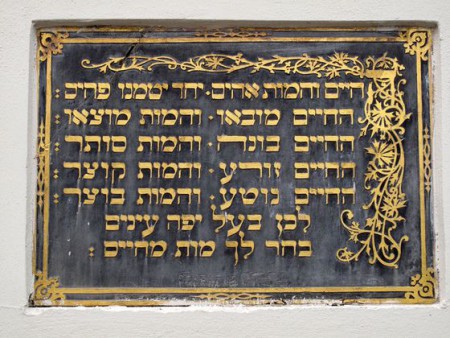 חיים והמות אחים· יחד יטמנו פחים:
החיים מובאו· והמות מוצאו:
החיים בונה· והמות סותר:
החיים זורע· והמות קוצר:
החיים נוטע· והמות בוצר:
לכן בעל יפה עינים
בחר לך מות מחיים: